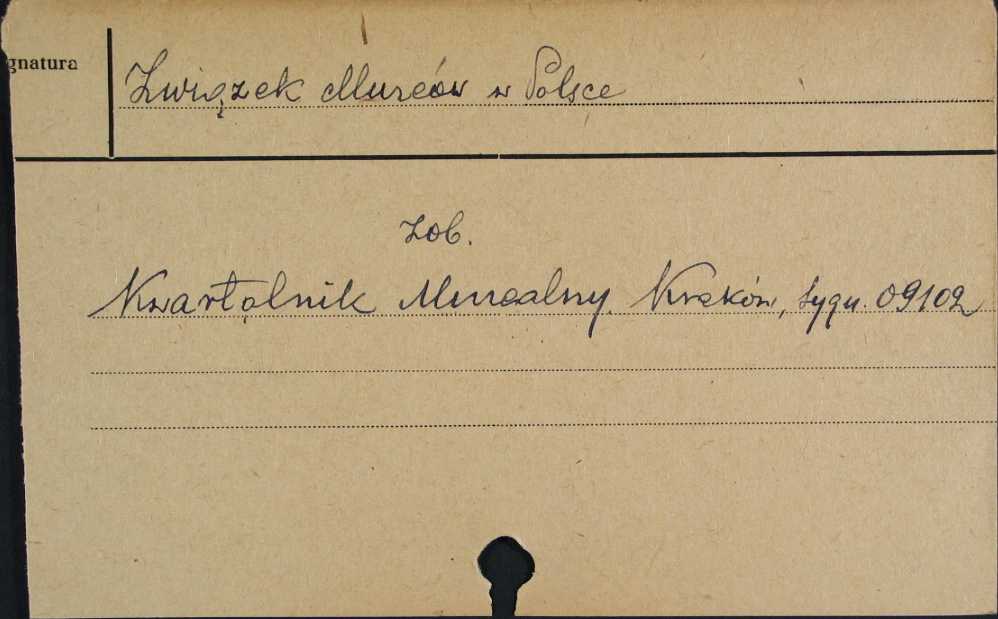 gnatura
Związek Muzeów w Polsce
zob.
Kwartalnik Muzealny. Kraków, sygn. 09102